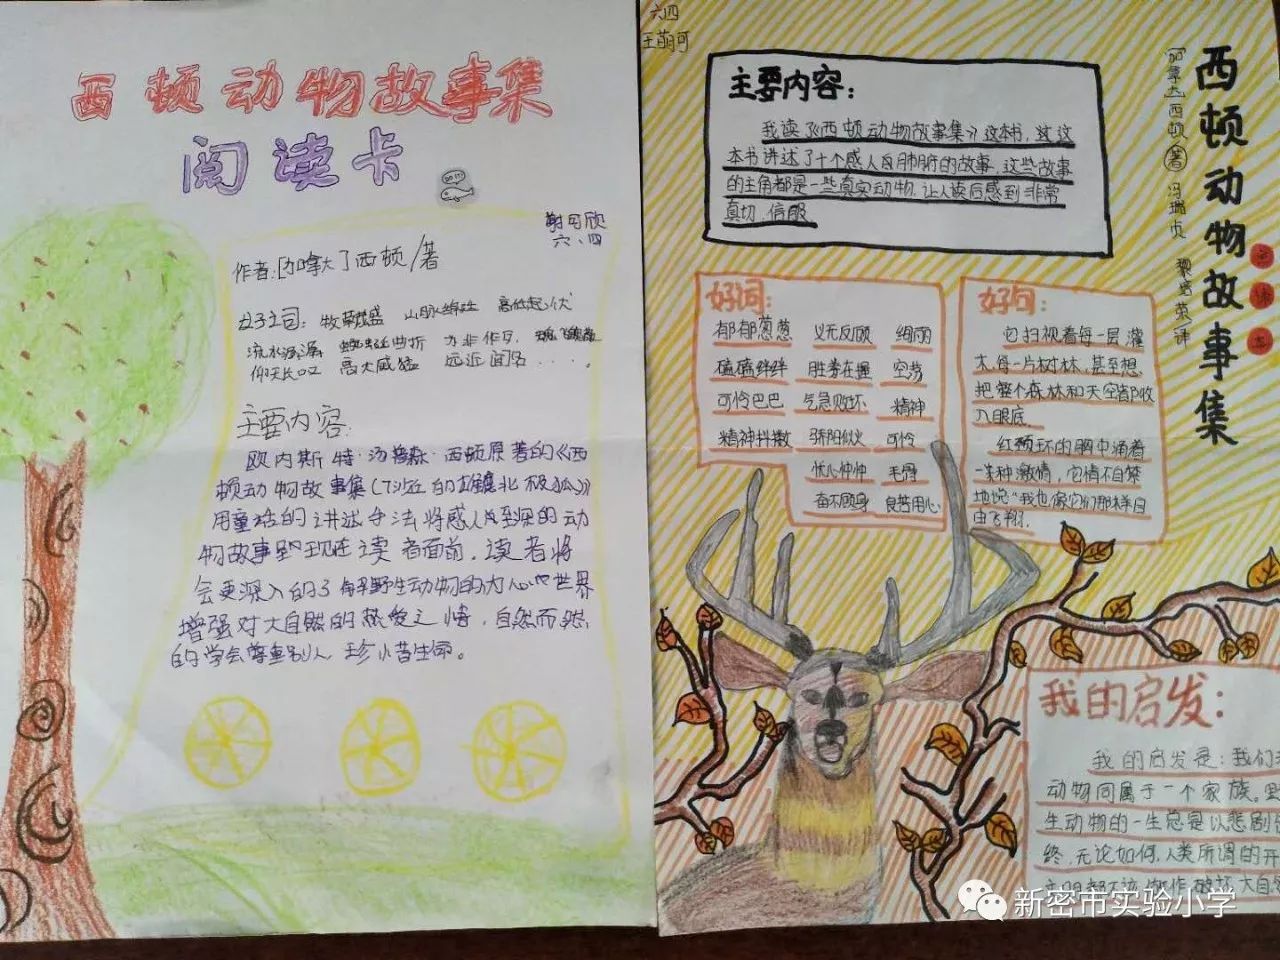 西顿动物故事集
阅读卡
六、四
作者:[加拿大]西顿/著
好词:牧草茂盛 山脉绵延 高低起伏
流水潺潺 蜿蜒曲折
仰天长叹 高大威猛 远近闻名......
主要内容:
欧内斯特·汤普森·西顿原著的《西
顿动物故事集
用童话的讲述手法将感人至深的动
物故事呈现在读者面前,读者将
会更深入的了解野生动物的内心世界
增强对大自然的热爱之情,自然而然
的学会尊重别人,珍惜生命。
六四
王萌可
西顿动物故事集
[加拿大]西顿 著 冯瑞贞 黎安荣 译
主要内容:
我读了《西顿动物故事集》这本书,这这
本书讲述了十个感人肺腑的故事,这些故事
的主角都是一些真实动物,让人读后感到非常
真切,信服
好词:
郁郁葱葱 义无反顾 绸雨
磕磕绊绊 胜券在握 空荡
可怜巴巴 气急败坏 精神
精神抖擞 骄阳似火 可怜
忧心忡忡 毛骨
奋不顾身 良苦用心
好句:
它扫视着每一层灌
木,每一片树林,甚至想
把整个森林和天空都收
入眼底.
红颈环的胸中涌着
一种激情,它情不自禁
地说“我也像它们那样自
由飞翔.
我的启发:
我的启发是:我们
动物同属于一个家族。野
生动物的一生总是以悲剧
终,无论如何,人类所谓的开
破坏大自然
新密市实验小学